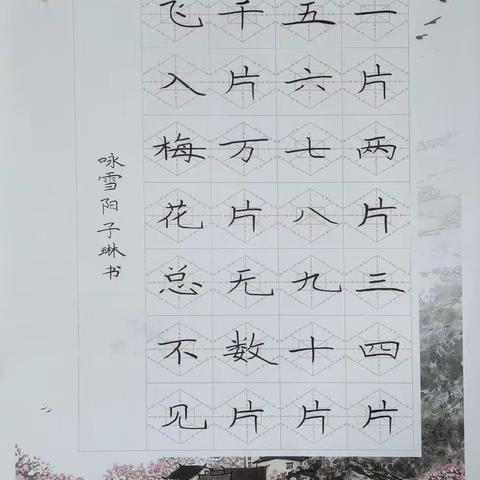 一片两片三四片
五六七八九十片
千片万片无数片
飞入梅花总不见
咏雪阳子琳书